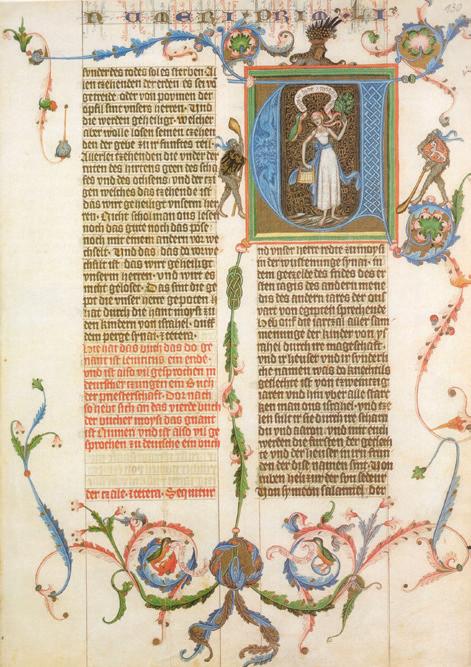 NUMERI PRIM LI
130
sunder des todes sol es sterben Al
len czehenden der erden es sei vō
getreide oder von poumen der
opfil sint unsers herren vnd
die werden geheiliget welcher
aber wolle losen seinen czehen
den der gebe zu ir funftes teil
Allerlei czehenden die vnder der
ruten des hirtens geen des scha
fes vnd des ochsens vnd der czi
gen welches das czehende ist
das wirt geheiliget vnserm her
ren Nicht schol man ous lesen
noch das gute noch das pose
noch mit einem andern vor we
chselt Vnd das das do vorwe
chselt ist das wirt geheiliget
vnserm herren vnd wirt es
nicht geloset Das sint die ge
pot die vnser herre gepoten
hat durch die hant moysi zu
den kindern von israhel ouf
dem perge synai etcetera
Hie hat das buch das do ge
nant ist leuiticus ein ende
vnd ist also vil gesprochen in
deutscher czungen ein buch
der priesterschaft Dor nach
so hebt sich an das vierde buch
der bucher moysi das genant
ist Numeri vnd ist also vil ge
sprochen zu deutsche ein buch
der etcetera Sequitur
nd vnser herre redte zu moysi
in der wustenunge synai in
dem geczelde des frides des er
sten tagis des andern mend
des andern iares der ous
vart von egipten sprechende
Heb ouf die iarczal aller sam
menunge der kinder von isra
hel durch ire mageschaft
vnd ir heuser vnd ir sundern
che namen was do knechtlis
geslechte ist von czweinczig
iaren vnd hin vber alle star
ken man ous israhel vnd cze
len sult ir sie durch ire scharn
du vnd aaron vnd mit euch
werden die fursten der geslech
te vnd der heuser in irn frun
den der dise namen sint Von
ruben helizur der son sedeur
Von symeon salamiel der